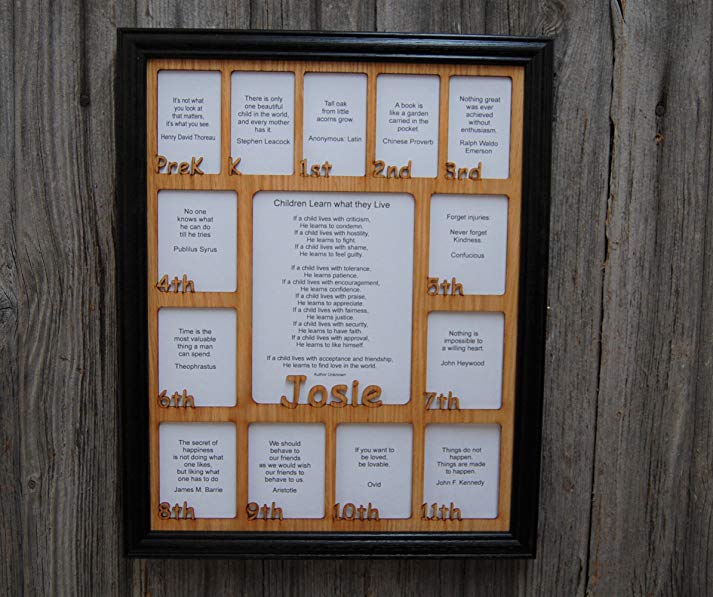 It's not what
you look at
that matters,
it's what you see.
Henry David Thoreau
PreK
There is only
one beautiful
child in the world,
and every mother
has it.
Stephen Leacock
K
Tall oak
from little
acorns grow.
Anonymous: Latin
1st
A book is
like a garden
carried in the
pocket.
Chinese Proverb
2nd
Nothing great
was ever
achieved
without
enthusiasm.
Ralph Waldo
Emerson
3rd
No one
knows what
he can do
till he tries
Publilius Syrus
4th
Children Learn what they Live
If a child lives with criticism,
He learns to condemn.
If a child lives with hostility,
He learns to fight.
If a child lives with shame,
He learns to feel guilty.
If a child lives with tolerance,
He learns patience.
If a child lives with encouragement,
He learns confidence.
If a child lives with praise,
He learns to appreciate.
If a child lives with fairness,
He learns justice.
If a child lives with security,
He learns to have faith.
If a child lives with approval,
He learns to like himself.
If a child lives with acceptance and friendship,
He learns to find love in the world.
Author Unknown
Josie
Forget injuries:
Never forget
Kindness.
Confucious
5th
Time is the
most valuable
thing a man
can spend.
Theophrastus
6th
Nothing is
impossible to
a willing heart.
John Heywood
7th
The secret of
happiness
is not doing what
one likes,
but liking what
one has to do
James M. Barrie
8th
We should
behave to
our friends
as we would wish
our friends to
behave to us.
Aristotle
9th
If you want to
be loved,
be lovable.
Ovid
10th
Things do not
happen.
Things are made
to happen.
John F. Kennedy
11th